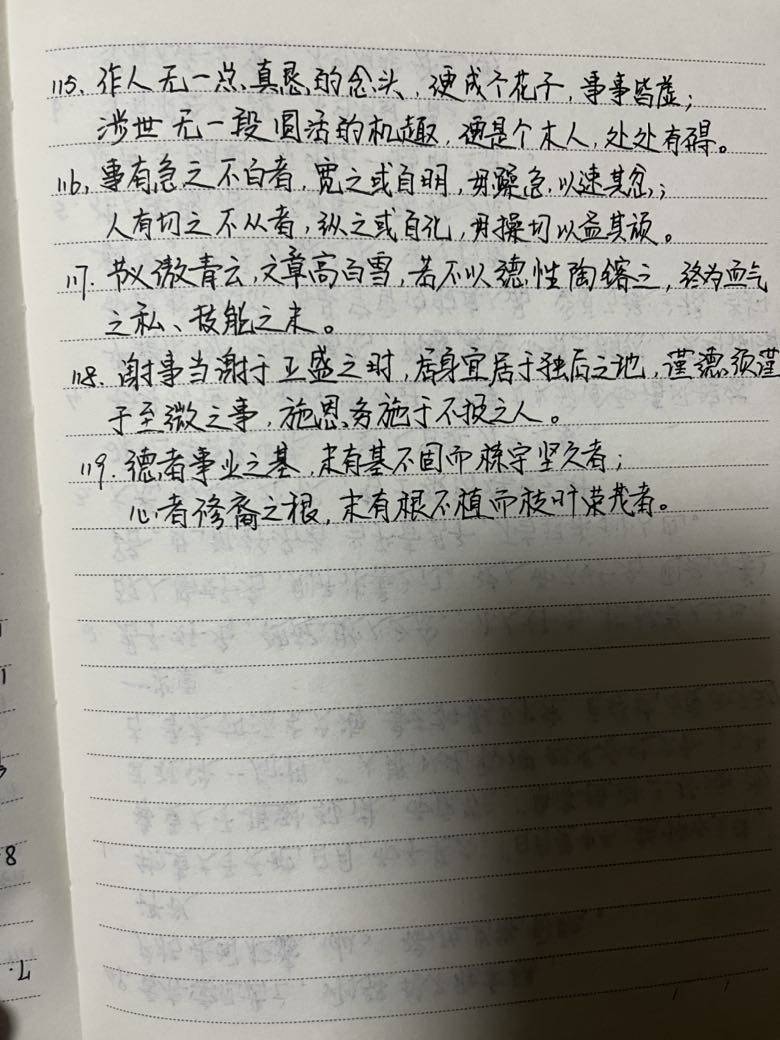 115、作人无一点真恳的念头，便成个花子，事事皆虚；
涉世无一段圆活的机趣，便是个木人，处处有碍。
116、事有急之不白者，宽之或自明，毋躁急以速其忿；
人有切之不从者，纵之或自化，毋操切以益其顽。
117.节义傲青云，文章高白雪，若不以德性陶镕之，终为血气
之私、技能之末。
118.谢事当谢于正盛之时，居身宜居于独后之地，谨德须谨
于至微之事，施恩务施于不报之人。
119.德者事业之基，未有基不固而栋宇坚久者；
心者修裔之根，未有根不植而枝叶荣茂者。
8
7.